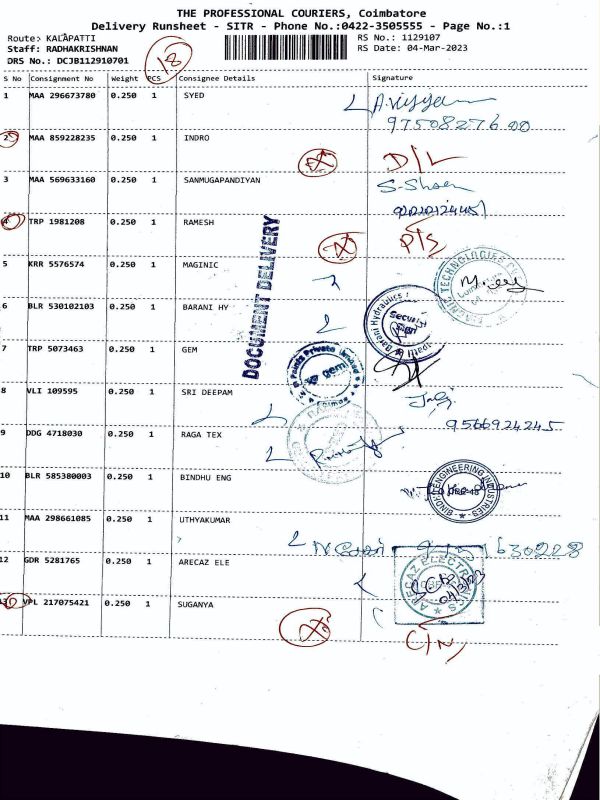 THE PROFESSIONAL COURIERS, Coimbatore
Delivery Runsheet - SITR - Phone No.:0422-3505555 - Page No.:1
Route:- KALAPATTI
RS No.: 1129107
Staff: RADHAKRISHNAN
RS Date: 04-Mar-2023
DRS No.: DCJB112910701
18
S No Consignment No Weight PCS Consignee Details Signature
1 MAA 296673780 0.250 1 SYED
9750827600
2 MAA 859228235 0.250 1 INDRO
D/L
3 MAA 569633160 0.250 1 SANMUGAPANDIYAN
4 TRP 1981208 0.250 1 RAMESH
DOCUMENT DELIVERY
5 KRR 5576574 0.250 1 MAGINIC
6 BLR 530102103 0.250 1 BARANI HY
Barani Hydraulics
Security
7 TRP 5073463 0.250 1 GEM
Paints Private Limited
gem
8 VLI 109595 0.250 1 SRI DEEPAM
9566924245
9 DDG 4718030 0.250 1 RAGA TEX
10 BLR 585380003 0.250 1 BINDHU ENG
ENGINEERING INDUSTRIES
11 MAA 298661085 0.250 1 UTHYAKUMAR
12 GDR 5281765 0.250 1 ARECAZ ELE
ARECAZ ELECTRONICS
13 VPL 217075421 0.250 1 SUGANYA
C/N